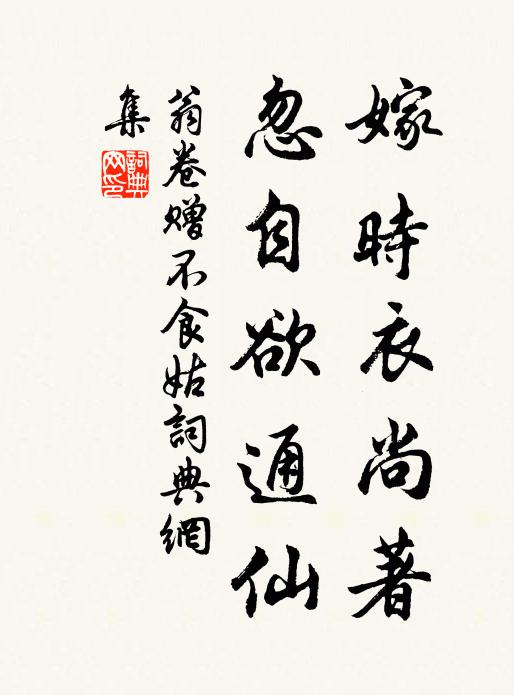 嫁時衣尚著
忽自欲通仙
翁卷赠不食姑詞典網
集
詞典网印